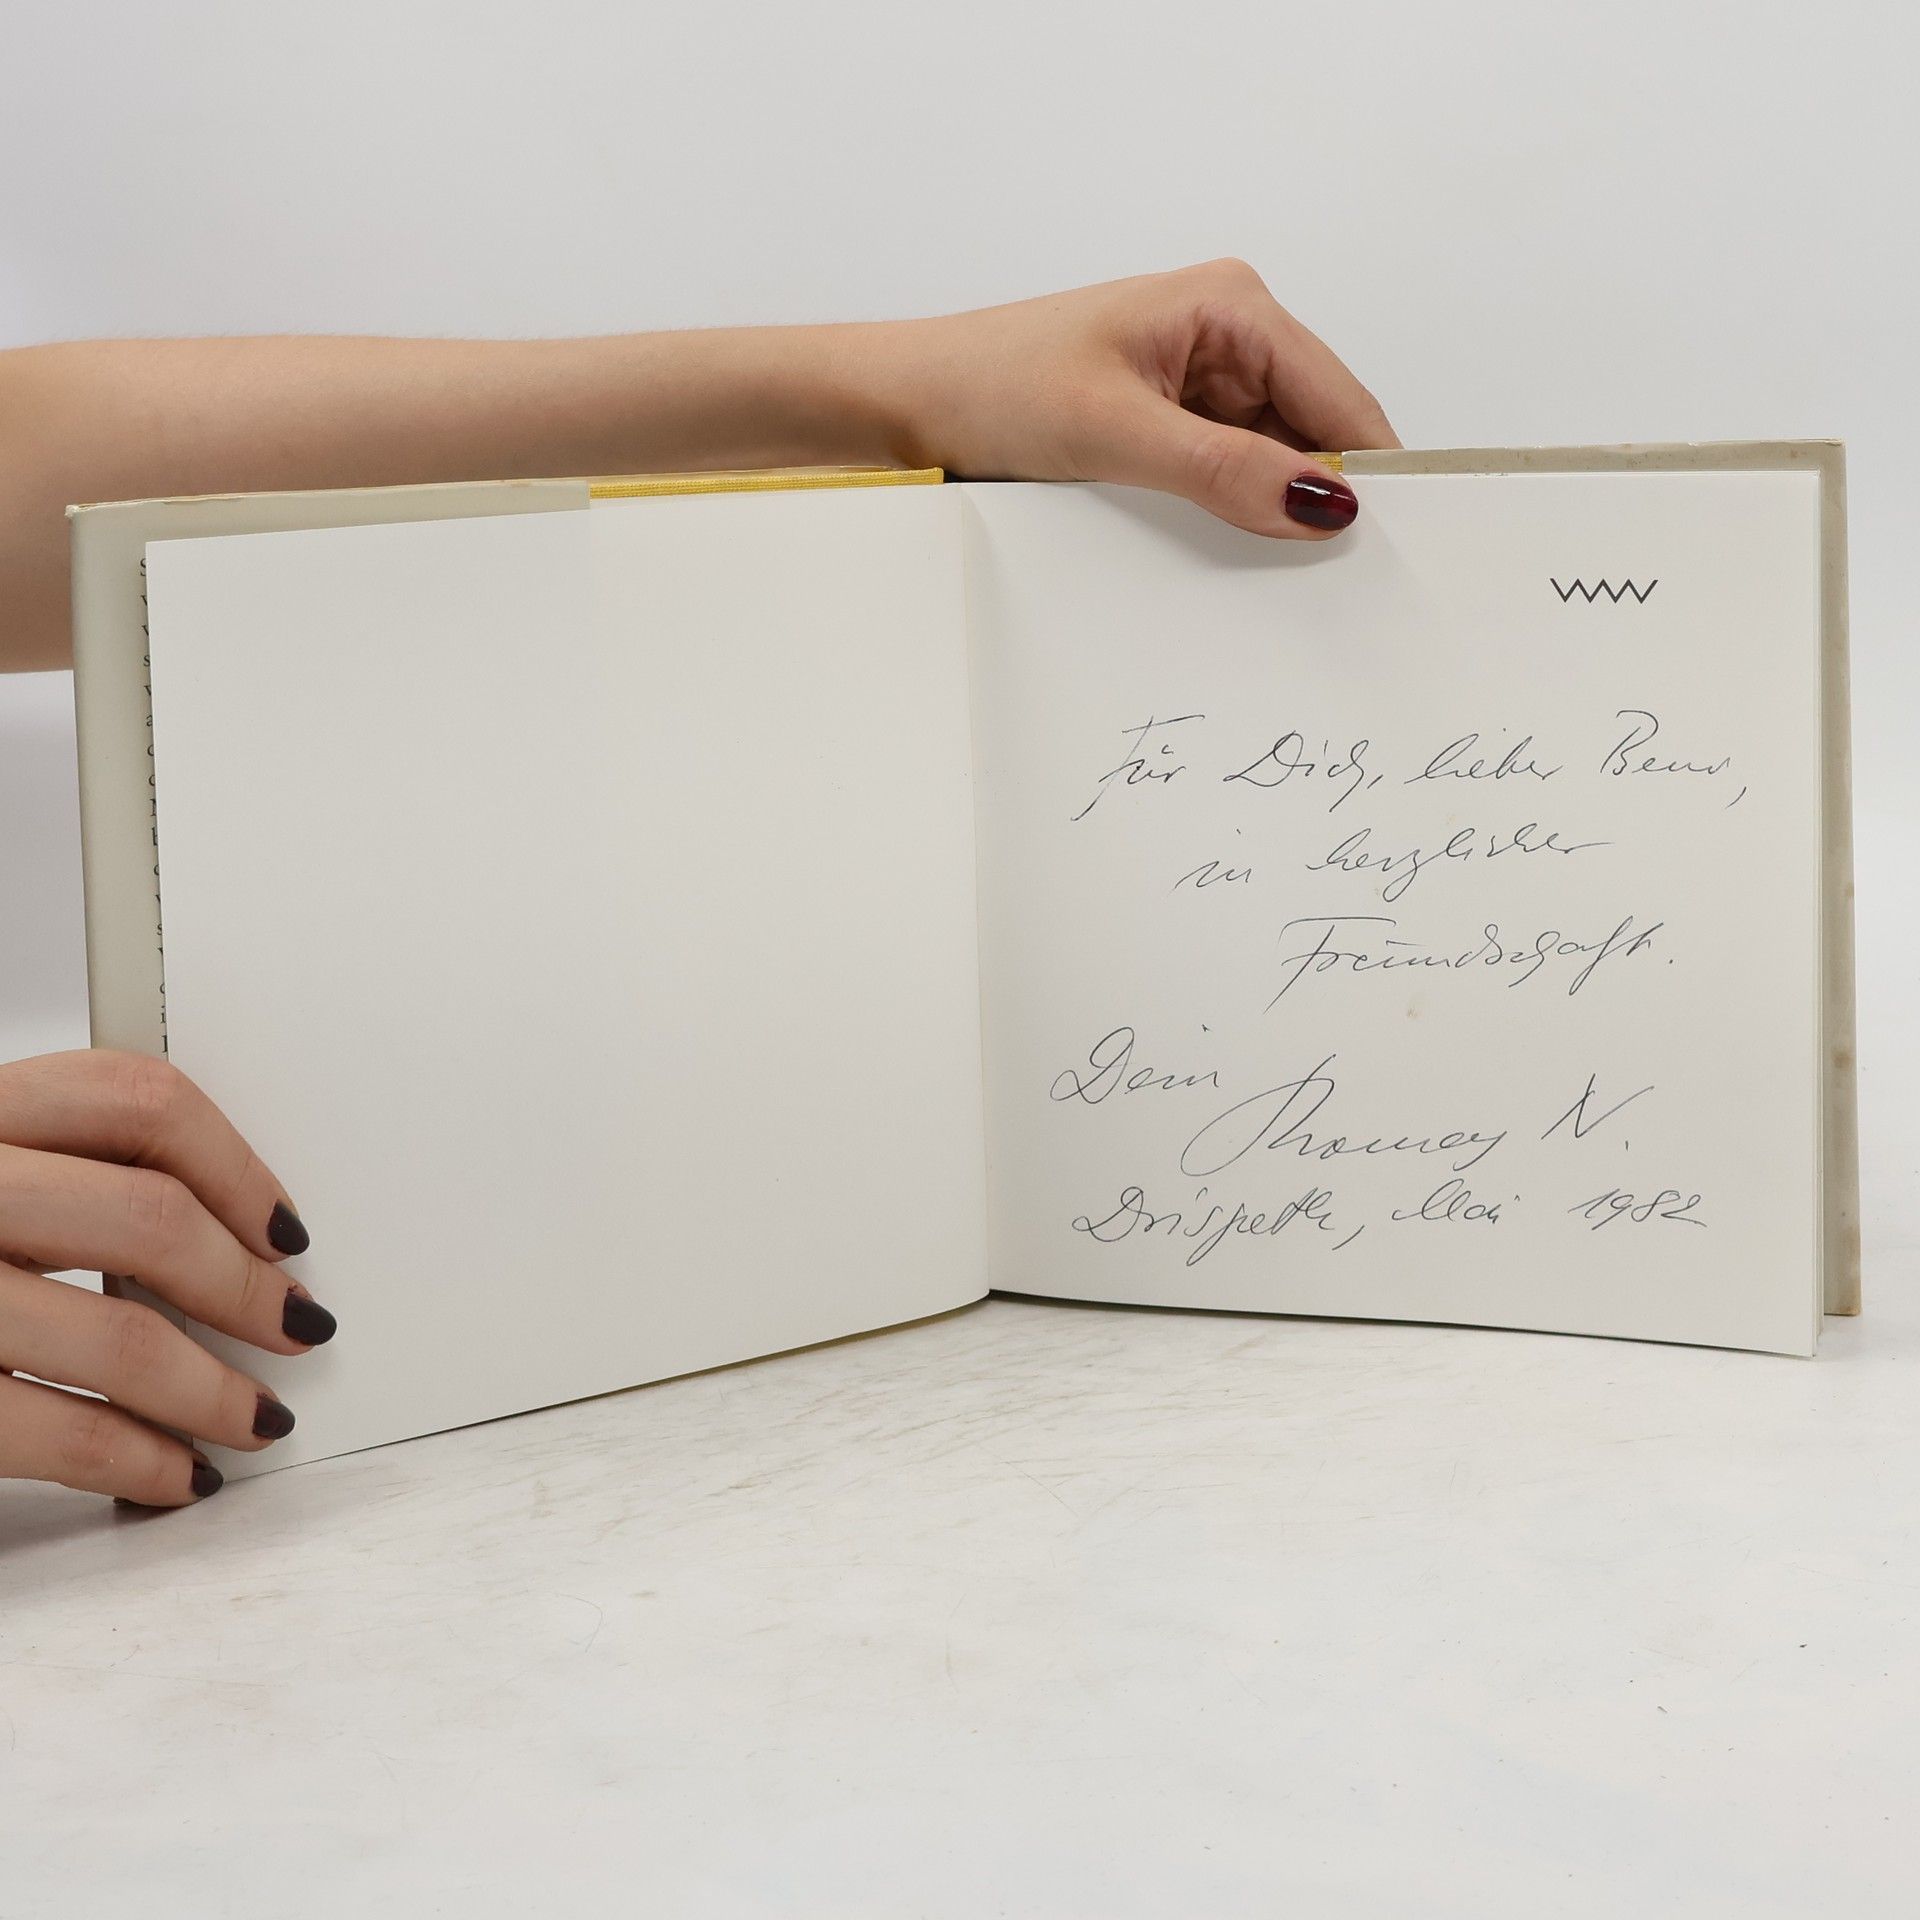 Für Dich, lieber Benno,
in herzlicher
Freundschaft.
Dein
Thomas N.
Drispeth, Mai 1982